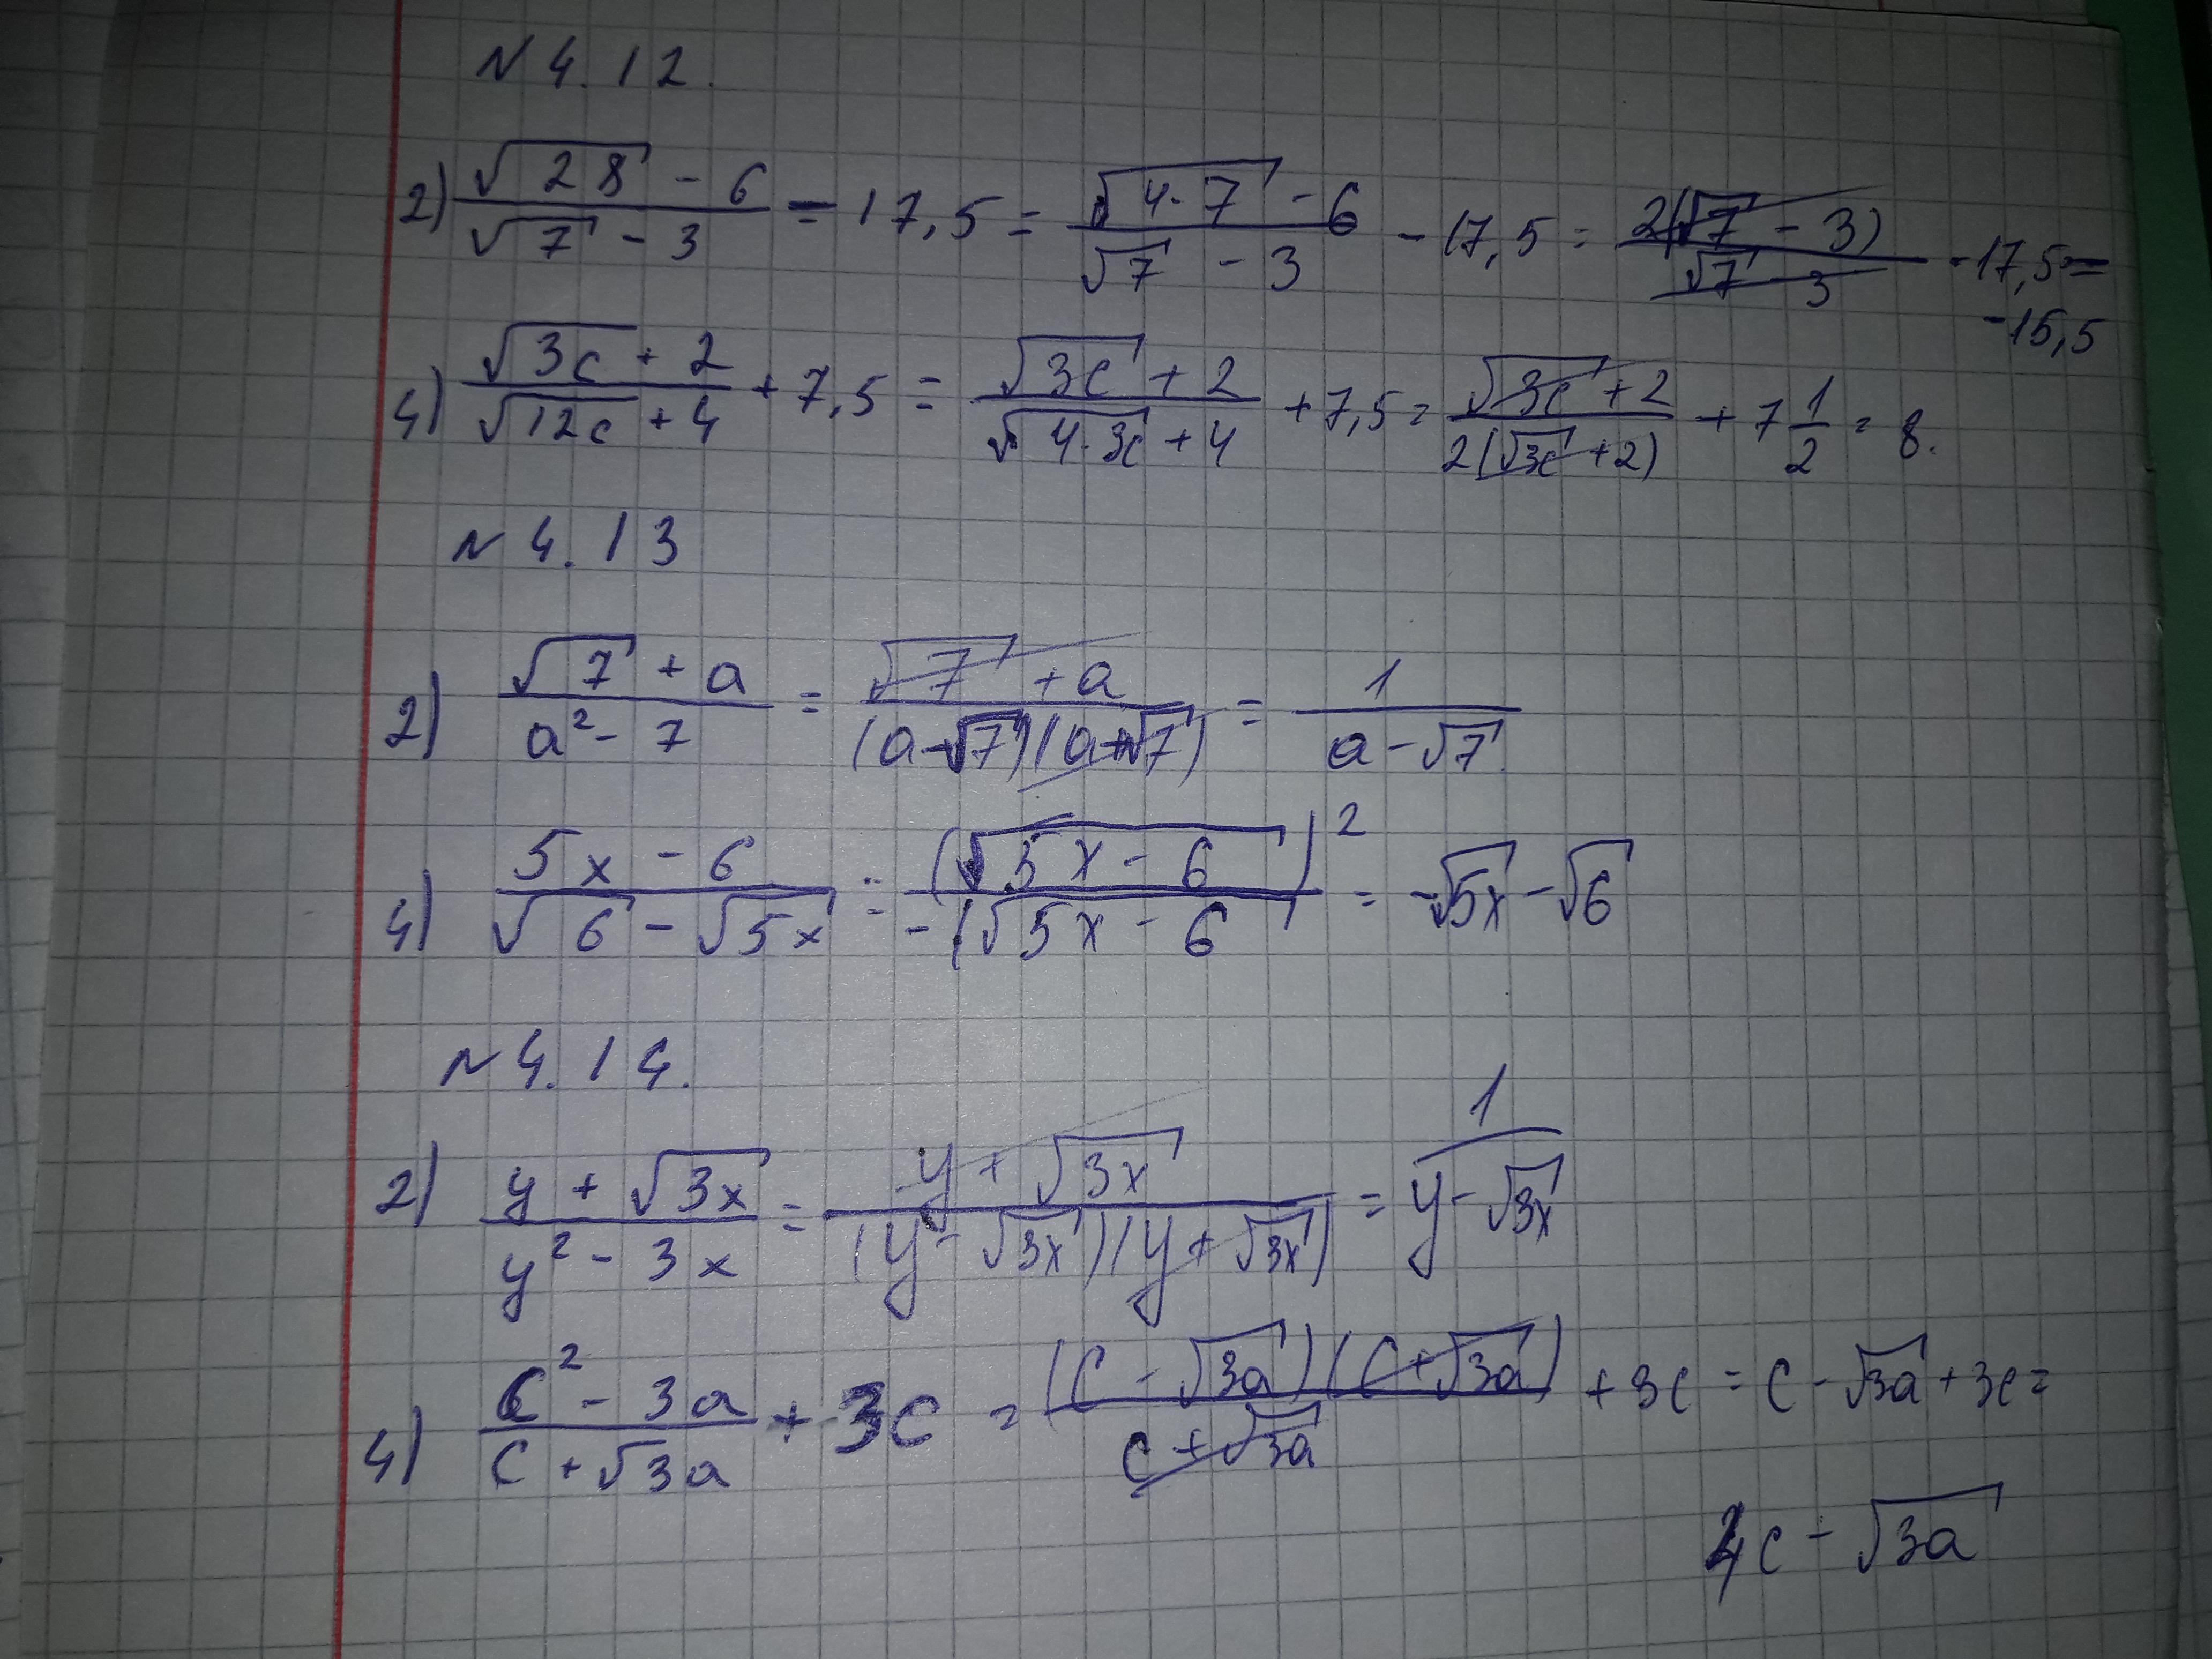 N 4.12.
2) (√28 - 6)/(√7 - 3) - 17,5 = (√4·7 - 6)/(√7 - 3) - 17,5 = 2(√7 - 3)/(√7 - 3) - 17,5 =
-15,5
4) (√3c + 2)/(√12c + 4) + 7,5 = (√3c + 2)/(√4·3c + 4) + 7,5 = (√3c + 2)/2(√3c + 2) + 7 1/2 = 8.
N 4.13
2) (√7 + a)/(a² - 7) = (√7 + a)/(a-√7)(a+√7) = 1/(a - √7)
4) (5x - 6)/(√6 - √5x) = (√5x - 6)²/-(√5x - 6) = -√5x - √6
N 4.14.
2) (y + √3x)/(y² - 3x) = (y + √3x)/(y - √3x)(y + √3x) = 1/(y - √3x)
4) (c² - 3a)/(c + √3a) + 3c = (c - √3a)(c + √3a)/(c + √3a) + 3c = c - √3a + 3c =
4c - √3a